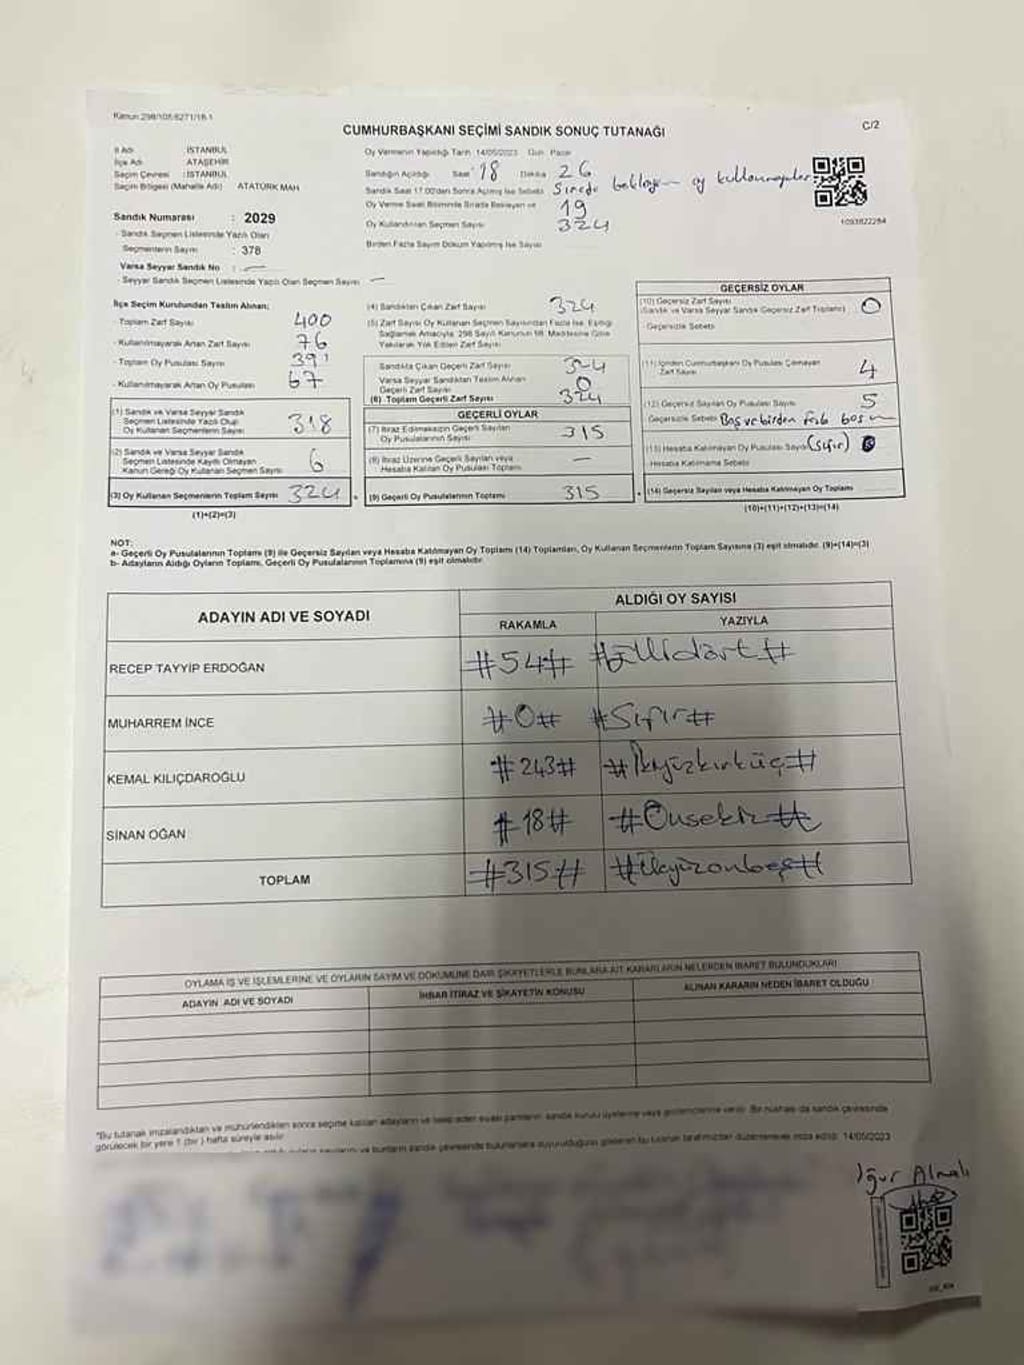 Kanun:298/105.6271/16.1
CUMHURBAŞKANI SEÇİMİ SANDIK SONUÇ TUTANAĞI
C/2
İl Adı : İSTANBUL
İlçe Adı : ATAŞEHİR
Seçim Çevresi : İSTANBUL
Seçim Bölgesi (Mahalle Adı) ATATÜRK MAH
Sandık Numarası : 2029
- Sandık Seçmen Listesinde Yazılı Olan
Seçmenlerin Sayısı : 378
Varsa Seyyar Sandık No : —
- Seyyar Sandık Seçmen Listesinde Yazılı Olan Seçmen Sayısı —
Oy Vermenin Yapıldığı Tarih 14/05/2023 Gün Pazar
Sandığın Açıldığı Saat 18 Dakika 26
Sandık Saat 17.00'den Sonra Açılmış İse Sebebi Sırada bekleyen oy kullanmayanlar
Oy Verme Saati Bitiminde Sırada Bekleyen ve 19
Oy Kullandırılan Seçmen Sayısı 324
Birden Fazla Sayım Döküm Yapılmış İse Sayısı
1093822284
İlçe Seçim Kurulundan Teslim Alınan;
- Toplam Zarf Sayısı 400
- Kullanılmayarak Artan Zarf Sayısı 76
- Toplam Oy Pusulası Sayısı 391
- Kullanılmayarak Artan Oy Pusulası 67
(1) Sandık ve Varsa Seyyar Sandık
Seçmen Listesinde Yazılı Olup
Oy Kullanan Seçmenlerin Sayısı 318
(2) Sandık ve Varsa Seyyar Sandık
Seçmen Listesinde Kayıtlı Olmayan
Kanun Gereği Oy Kullanan Seçmen Sayısı 6
(3) Oy Kullanan Seçmenlerin Toplam Sayısı 324
(1)+(2)=(3)
(4) Sandıktan Çıkan Zarf Sayısı 324
(5) Zarf Sayısı Oy Kullanan Seçmen Sayısından Fazla İse, Eşitliği
Sağlamak Amacıyla, 298 Sayılı Kanunun 98. Maddesine Göre
Yakılarak Yok Edilen Zarf Sayısı
Sandıkta Çıkan Geçerli Zarf Sayısı 324
Varsa Seyyar Sandıktan Teslim Alınan
Geçerli Zarf Sayısı 0
(6) Toplam Geçerli Zarf Sayısı 324
GEÇERLİ OYLAR
(7) İtiraz Edilmeksizin Geçerli Sayılan
Oy Pusulalarının Sayısı 315
(8) İtiraz Üzerine Geçerli Sayılan veya
Hesaba Katılan Oy Pusulası Toplamı —
(9) Geçerli Oy Pusulalarının Toplamı 315
GEÇERSİZ OYLAR
(10) Geçersiz Zarf Sayısı
(Sandık ve Varsa Seyyar Sandık Geçersiz Zarf Toplamı) 0
- Geçersizlik Sebebi
(11) İçinden Cumhurbaşkanı Oy Pusulası Çıkmayan
Zarf Sayısı 4
(12) Geçersiz Sayılan Oy Pusulası Sayısı 5
Geçersizlik Sebebi Boş ve birden fazla
(13) Hesaba Katılmayan Oy Pusulası Sayısı (sıfır)
Hesaba Katılmama Sebebi
(14) Geçersiz Sayılan veya Hesaba Katılmayan Oy Toplamı
(10)+(11)+(12)+(13)=(14)
NOT:
a- Geçerli Oy Pusulalarının Toplamı (9) ile Geçersiz Sayılan veya Hesaba Katılmayan Oy Toplamı (14) Toplamları, Oy Kullanan Seçmenlerin Toplam Sayısına (3) eşit olmalıdır. (9)+(14)=(3)
b- Adayların Aldığı Oyların Toplamı, Geçerli Oy Pusulalarının Toplamına (9) eşit olmalıdır.
ADAYIN ADI VE SOYADI
ALDIĞI OY SAYISI
RAKAMLA YAZIYLA
RECEP TAYYİP ERDOĞAN #54# #Ellidört#
MUHARREM İNCE #0# #Sıfır#
KEMAL KILIÇDAROĞLU #243# #İkiyüzkırküç#
SİNAN OĞAN #18# #Onsekiz#
TOPLAM #315# #Üçyüzonbeş#
OYLAMA İŞ VE İŞLEMLERİNE VE OYLARIN SAYIM VE DÖKÜMÜNE DAİR ŞİKAYETLERLE BUNLARA AİT KARARLARIN NELERDEN İBARET BULUNDUKLARI
ADAYIN ADI VE SOYADI İHBAR İTİRAZ VE ŞİKAYETİN KONUSU ALINAN KARARIN NEDEN İBARET OLDUĞU
*Bu tutanak imzalandıktan ve mühürlendikten sonra seçime katılan adayların ve talep eden siyasi partilerin sandık kurulu üyelerine veya gözlemcilerine verilir. Bir nüshası da sandık çevresinde
görülecek bir yere 1 (bir) hafta süreyle asılır.
bulunanlara duyurulduğunu gösteren bu tutanak tarafımızdan düzenlenerek imza edildi. 14/05/2023
Almalı